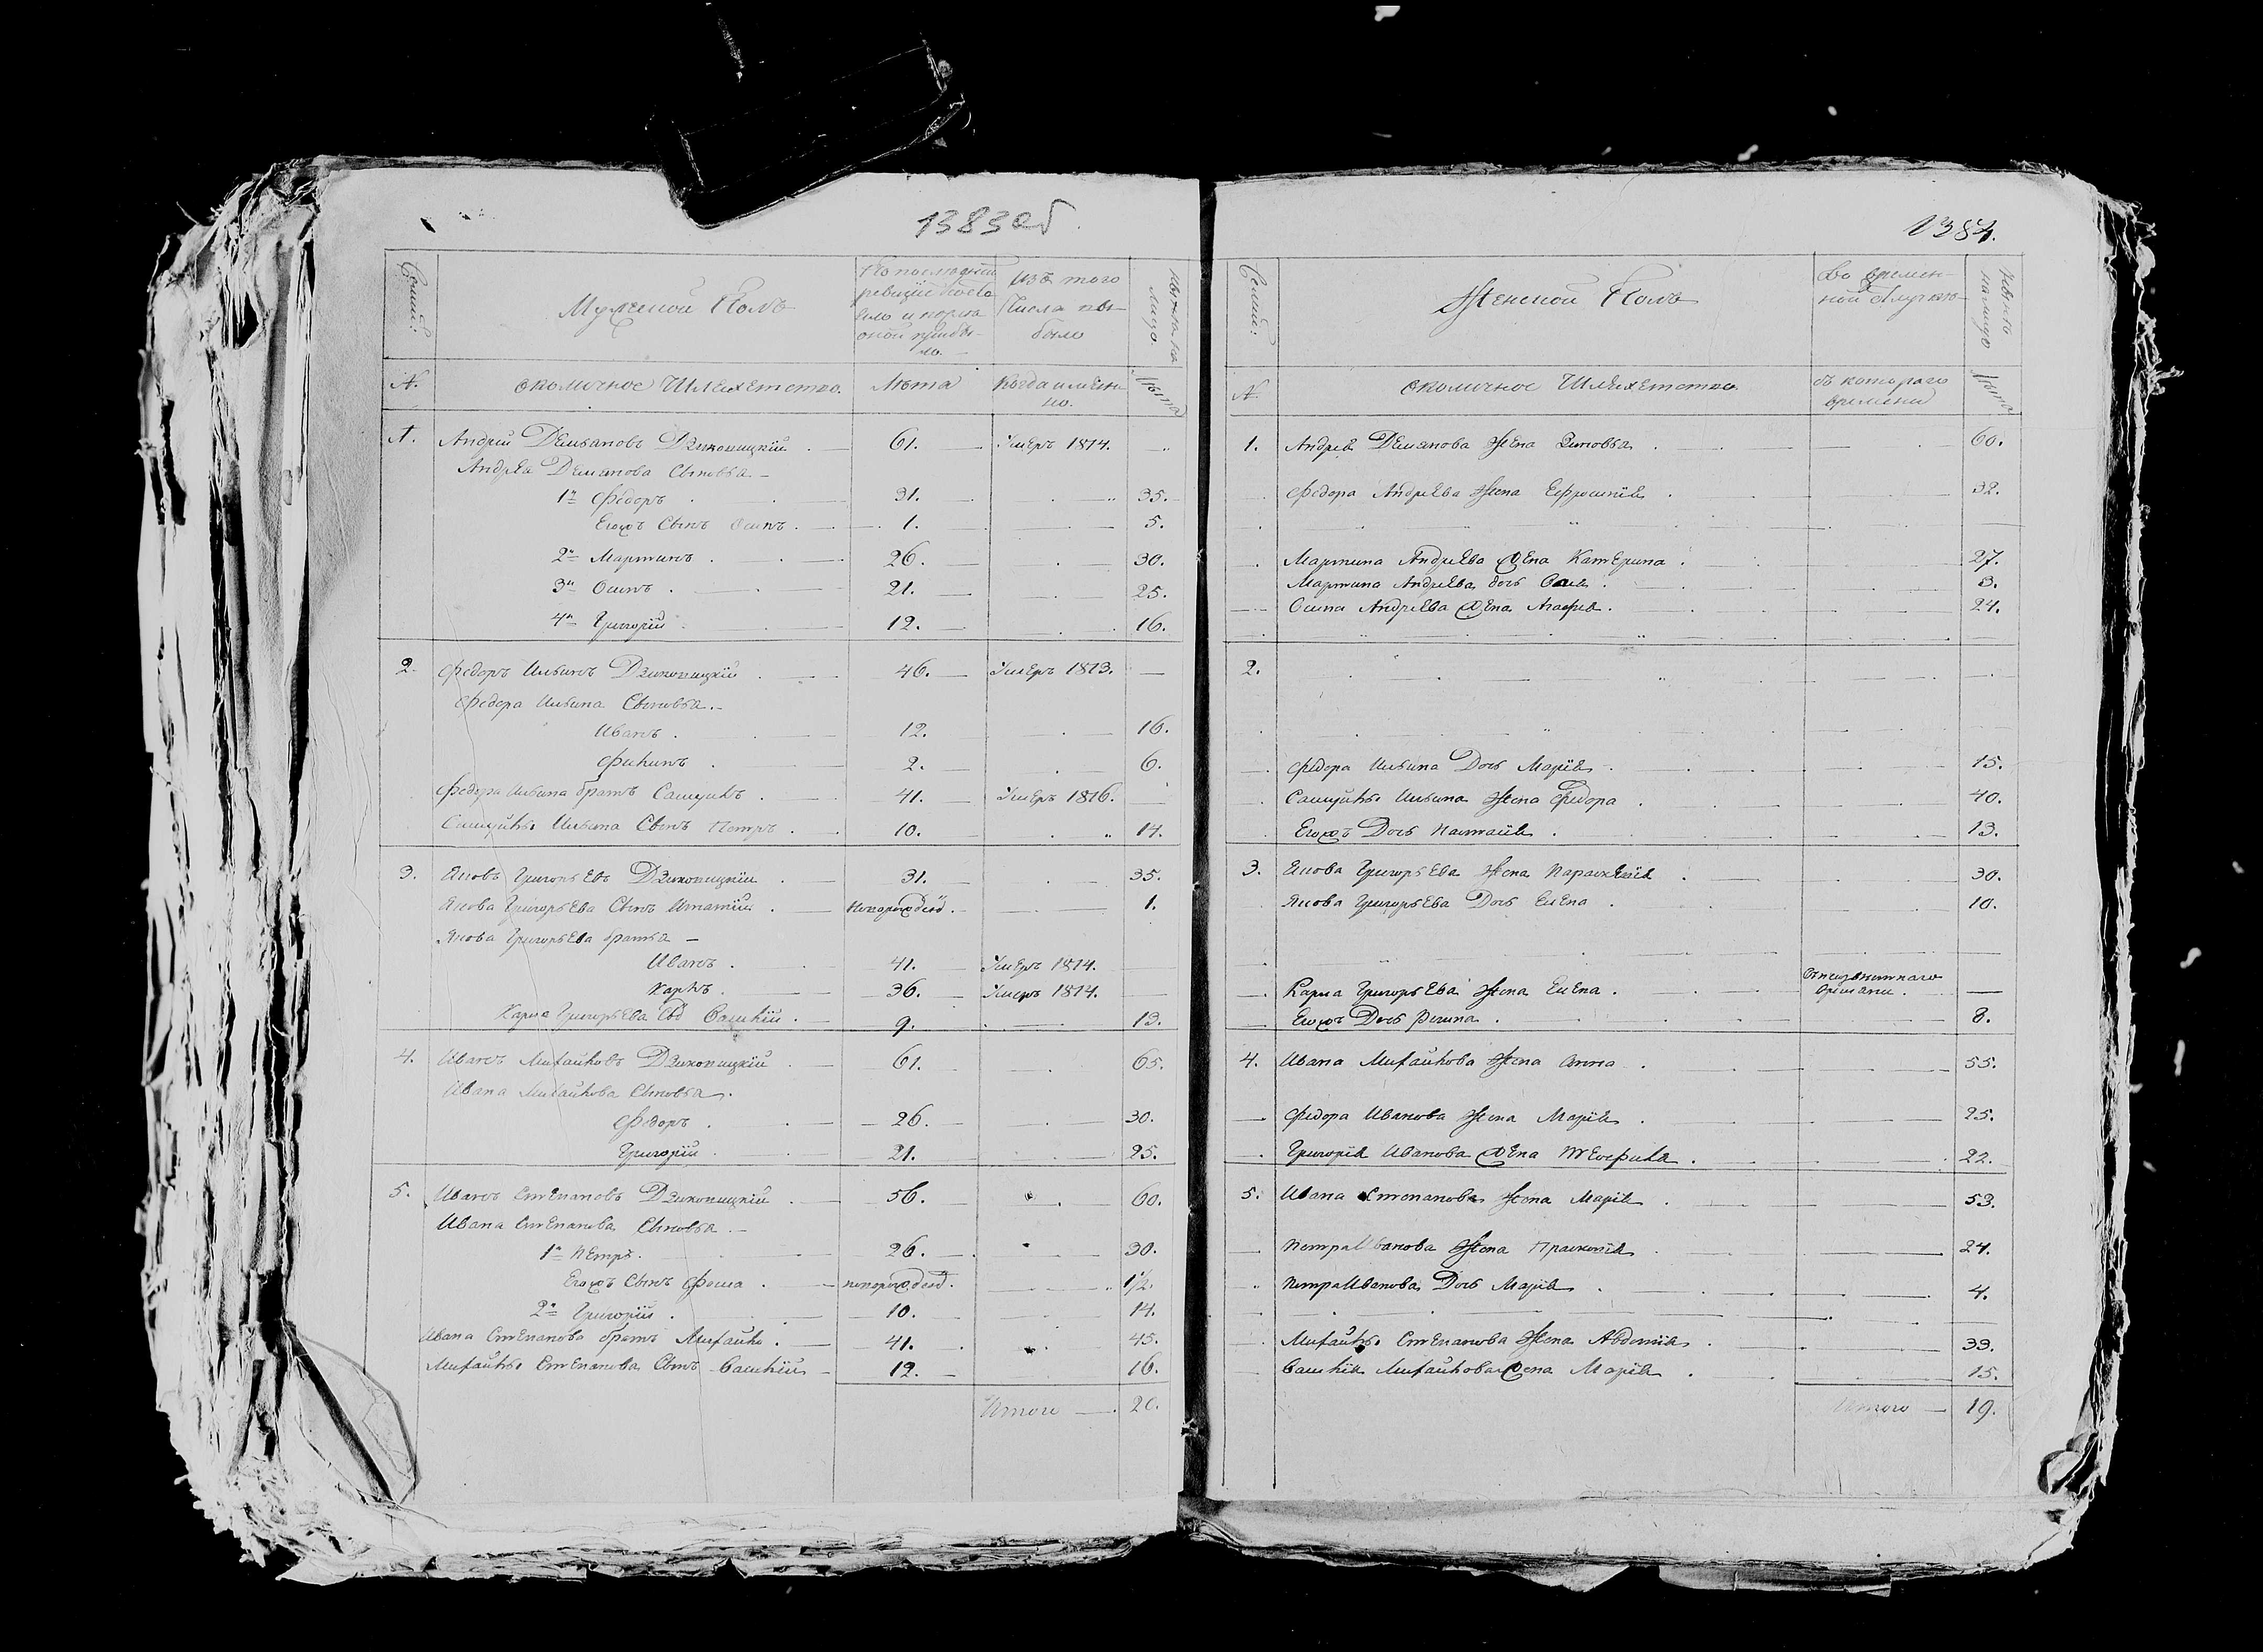 1383об.
Семьи:
Мужеской Полъ
По последней
ревизіи состо
яло и после
оной прибы-
ло.
Изъ того
числа вы-
было
Нынѣ на
лицо.
№.
околичное Шляхетство.
Лѣта
Когда имен
но.
Лѣта
1. Андрей Демьановъ Дзиковицкій . — 61. — Умеръ 1814. —
Андрѣа Демьанова Сыновьа —
1й Федоръ . 31. — 35.
Егожъ Сынъ Осипъ . — 1. — 5.
2й Мартинъ . 26. — 30.
3й Осипъ . 21. — 25.
4й Григорій . 12. — 16.
2. Федоръ Ильинъ Дзиковицкій . — 46. — Умеръ 1813. —
Федора Ильина Сыновьа. —
Иванъ . 12. 16.
Филипъ . 2. — 6.
Федора Ильина братъ Самуйлъ . 41. — Умеръ 1816.
Самуйлы Ильина Сынъ Петръ . 10. 14.
3. Яковъ Григорьевъ Дзиковицкій — 31. — 35.
Якова Григорьева Сынъ Игнатій . — новорожденъ. — 1.
Якова Григорьева братьа —
Иванъ . 41. — Умеръ 1814.
Карпъ . 36. — Умеръ 1814. —
Карпа Григорьева Сынъ Василій . 9. 13.
4. Иванъ Михайловъ Дзиковицкій . — 61. 65.
Ивана Михайлова Сыновьа .
Федоръ . — 26. — 30.
Григорій . — 21. — 25.
5. Иванъ Степановъ Дзиковицкій . — 56. — 60.
Ивана Степанова Сыновьа —
1й Петръ . — 26. — 30.
Егожъ Сынъ Фома . — новорожденъ. 1/2.
2й Григорій . 10. — 14.
Ивана Степанова братъ Михайло . — 41. 45.
Михайлы Степанова Сынъ Василій — 12. — 16.
Итого — 20.
1384.
Семьи:
Женской Полъ
Во времен-
ной отлучке
Нынѣ
на лицо
№.
околичное Шляхетство
съ котораго
времени
Лѣта
1. Андрея Демьанова Жена Зиновьа . — 60.
Федора Андрѣева Жена Ефросинія . 32.
Мартина Андрѣева Жена Катерина . 27.
Мартина Андрѣева дочь . 3.
Осипа Андрѣева Жена Агафія . 24.
2.
Федора Ильина Дочь Марія . 15.
Самуйлы Ильина Жена Федора . 40.
Егожъ Дочь Настасія . 13.
3. Якова Григорьева Жена Параскевія . 30.
Якова Григорьева Дочь Елена . 10.
Карпа Григорьева Жена Елена . —
времени .
Егожъ Дочь Регина . 8.
4. Ивана Михайлова Жена Анна . 55.
Федора Иванова Жена Марія . 25.
Григорія Иванова Жена Теофила . 22.
5. Ивана Степанова Жена Марія . 53.
Петра Иванова Жена Прасковія . 24.
Петра Иванова Дочь Марія . 4.
Михайлы Степанова Жена Авдотія . 33.
Василія Михайлова Жена Марія . 15.
Итого — 19.